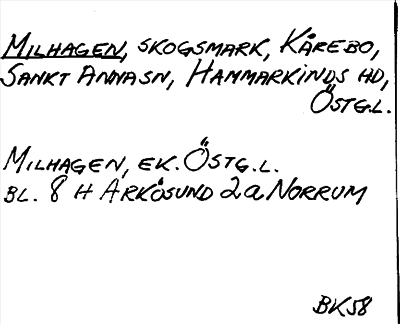 MILHAGEN, SKOGSMARK, KÅREBO,
SANKT ANNA SN, HAMMARKINDS HD,
ÖSTG.L.
MILHAGEN, EK. ÖSTG.L.
BL. 8 H ARKÖSUND 2a NORRUM
BK58